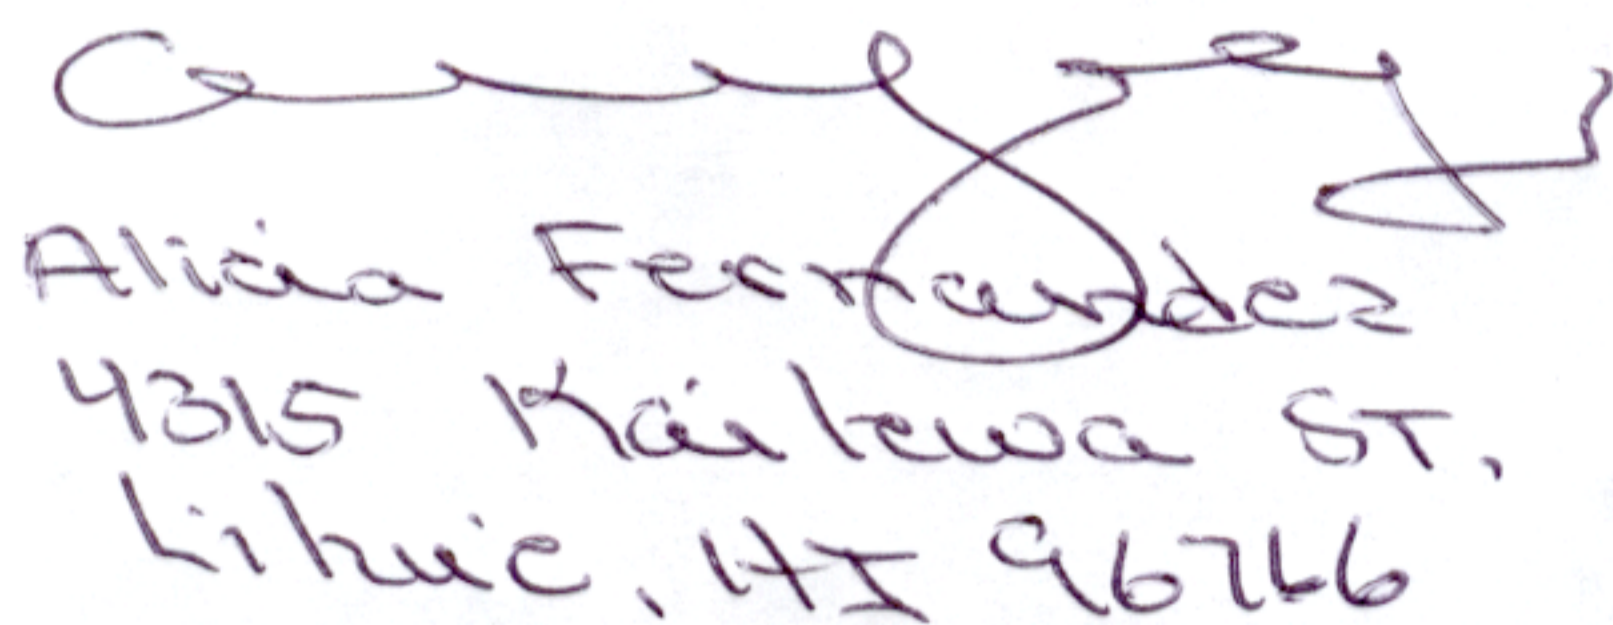 Alicia Fernandez
4315 Kaikewa ST.
Lihue, HI 96766